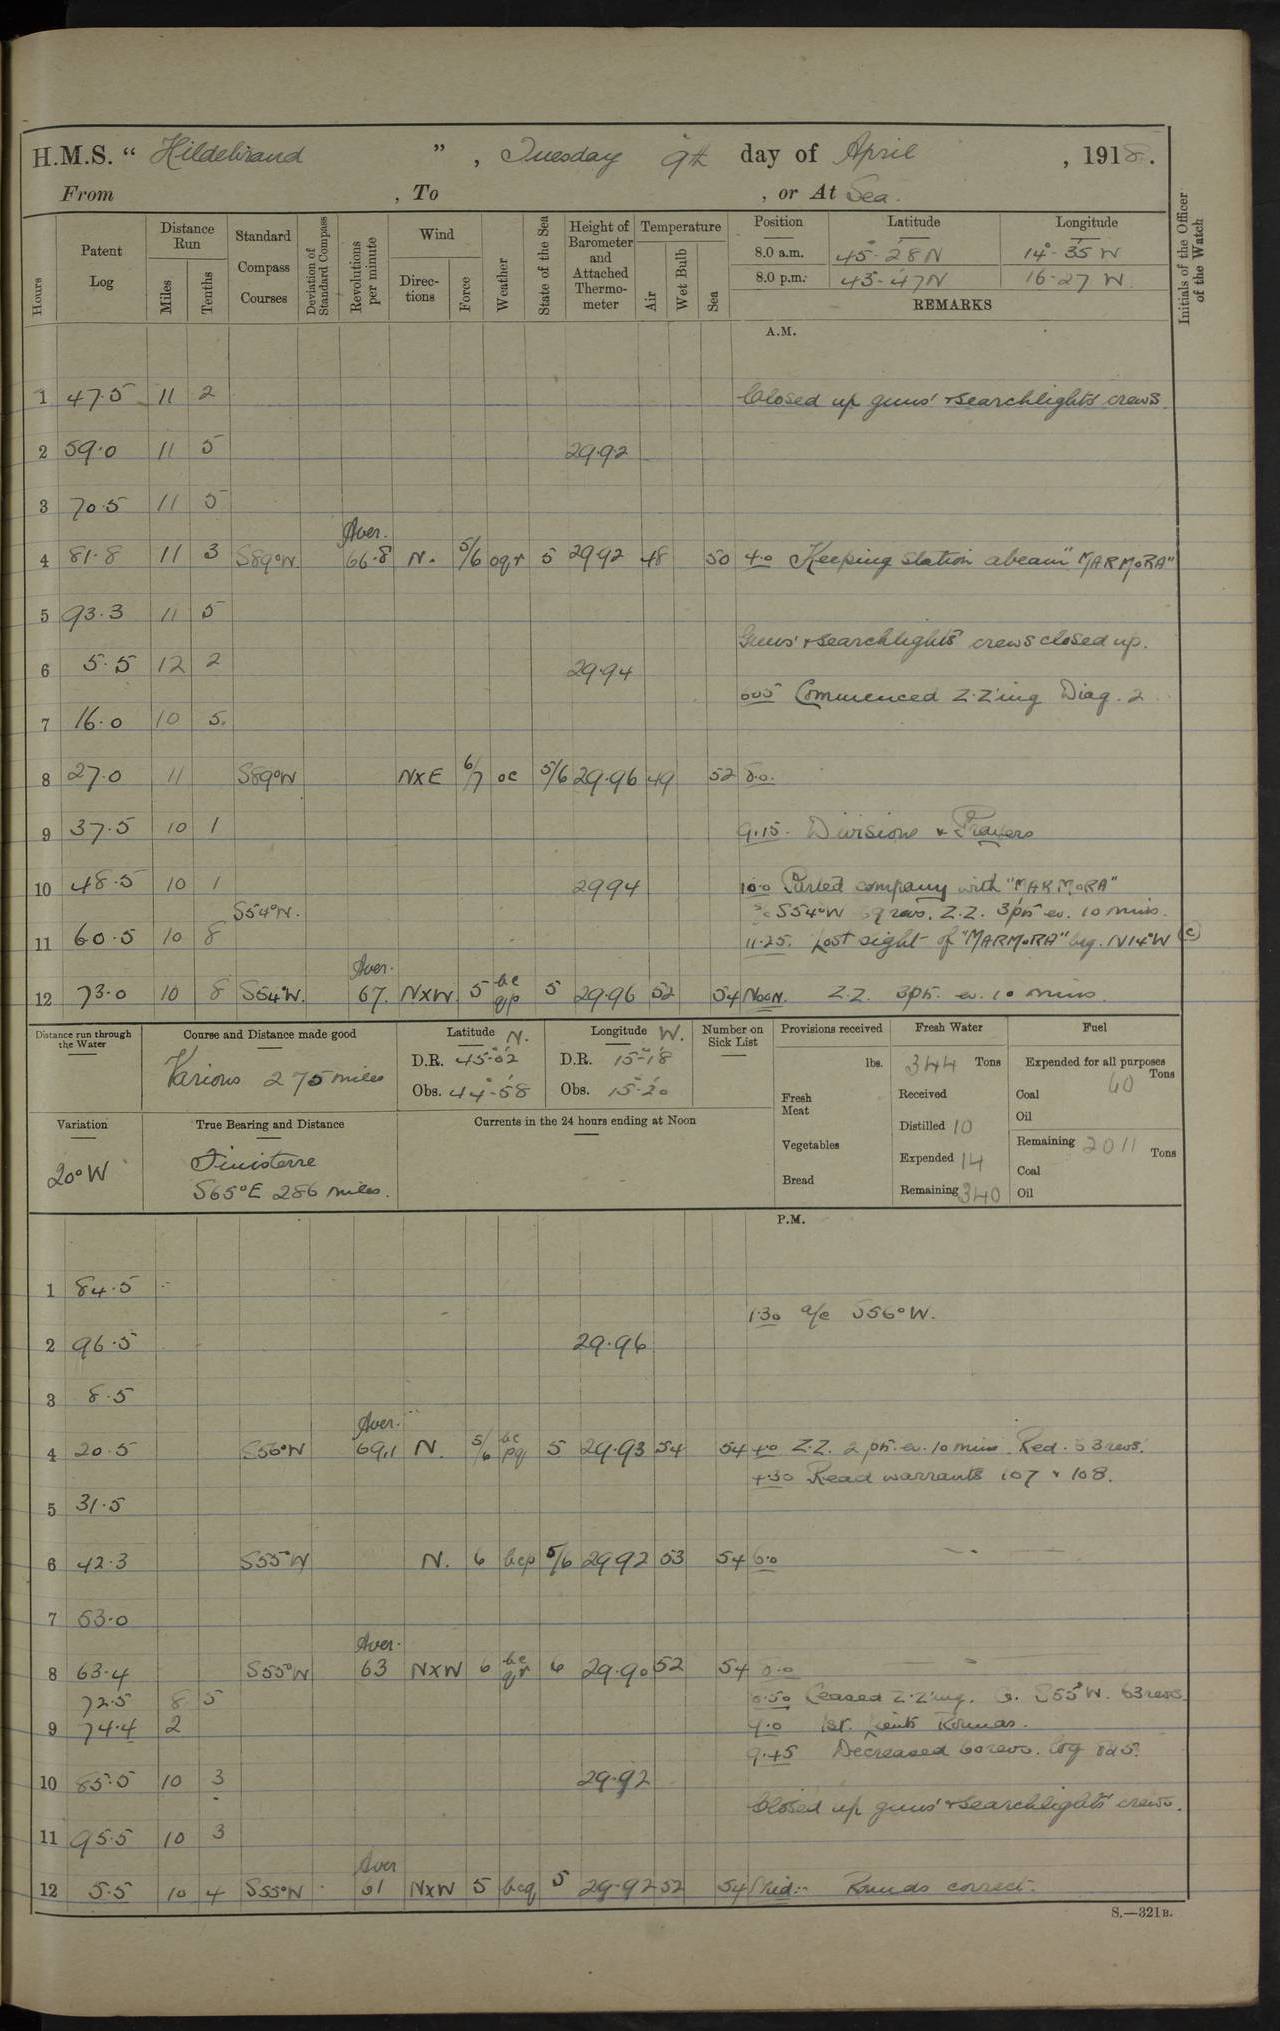 H.M.S. " Hildebrand " , Tuesday 9th day of April , 1918.
From , To , or At Sea.
Hours
Patent Log
Distance Run
Miles
Tenths
Standard Compass Courses
Deviation of Standard Compass
Revolutions per minute
Wind
Directions
Force
Weather
State of the Sea
Height of Barometer and Attached Thermometer
Temperature
Air
Wet Bulb
Sea
Position Latitude Longitude
8.0 a.m. 45°-28'N 14°-35'W
8.0 p.m. 43-47N 16-27 W
REMARKS
Initials of the Officer of the Watch
A.M.
1 47.5 11 2 Closed up guns' & searchlights' crews
2 59.0 11 5 29.92
3 70.5 11 5
Aver.
4 81.8 11 3 S89°W 66.8 N. 5/6 oqr 5 2992 48 50 4.0 Keeping station abeam "MARMORA"
5 93.3 11 5
Guns' & searchlights' crews closed up.
6 5.5 12 2 29.94
605 Commenced Z.Z'ing Diag. 2
7 16.0 10 5.
8 27.0 11 S89°W NXE 6/7 oc 5/6 29.96 49 52 8.0.
9 37.5 10 1 9.15. Divisions & Prayers
10 48.5 10 1 2994 10.0 Parted company with "MARMORA"
S54°W. S54°W 69 revs. Z.Z. 3pts ev. 10 mins.
11 60.5 10 8 11.25. Lost sight of "MARMORA" brg. N14°W (c)
Aver.
12 73.0 10 8 S54°W. 67. NXW 5 bc qp 5 29.96 52 54 Noon. Z.Z. 3pts. ev. 10 mins.
Distance run through the Water
Course and Distance made good
Various 275 miles
Latitude N.
D.R. 45°-02'
Obs. 44°-58'
Longitude W.
D.R. 15°-18'
Obs. 15°-20'
Number on Sick List
Provisions received
lbs.
Fresh Meat
Vegetables
Bread
Fresh Water
344 Tons
Received
Distilled 10
Expended 14
Remaining 340
Fuel
Expended for all purposes
60 Tons
Coal
Oil
Remaining 2011 Tons
Coal
Oil
Variation
20°W
True Bearing and Distance
Finisterre
S65°E 286 miles.
Currents in the 24 hours ending at Noon
P.M.
1 84.5
1.30 a/c S56°W.
2 96.5 29.96
3 8.5
Aver.
4 20.5 S56°W 69.1 N. 5/6 bc pq 5 29.93 54 54 4.0 Z.Z. 2 pts. ev. 10 mins. Red. 63 revs.
4.30 Read warrants 107 & 108.
5 31.5
6 42.3 S55°W N. 6 bcp 5/6 2992 53 54 6.0
7 53.0
Aver.
8 63.4 S55°W 63 NXW 6 bc qr 6 29.90 52 54 8.0
72.5 8 5 8.50 Ceased Z.Z'ing. Co. S55°W. 63 revs
9 74.4 2 9.0 1st. Lieuts Rounds.
9.45 Decreased 60 revs. log 82.5.
10 85.5 10 3 29.92
Closed up guns' & searchlights' crews.
11 95.5 10 3
Aver
12 5.5 10 4 S55°W 61 NXW 5 bcq 5 29.92 52 54 Mid:- Rounds correct.
S.—321B.